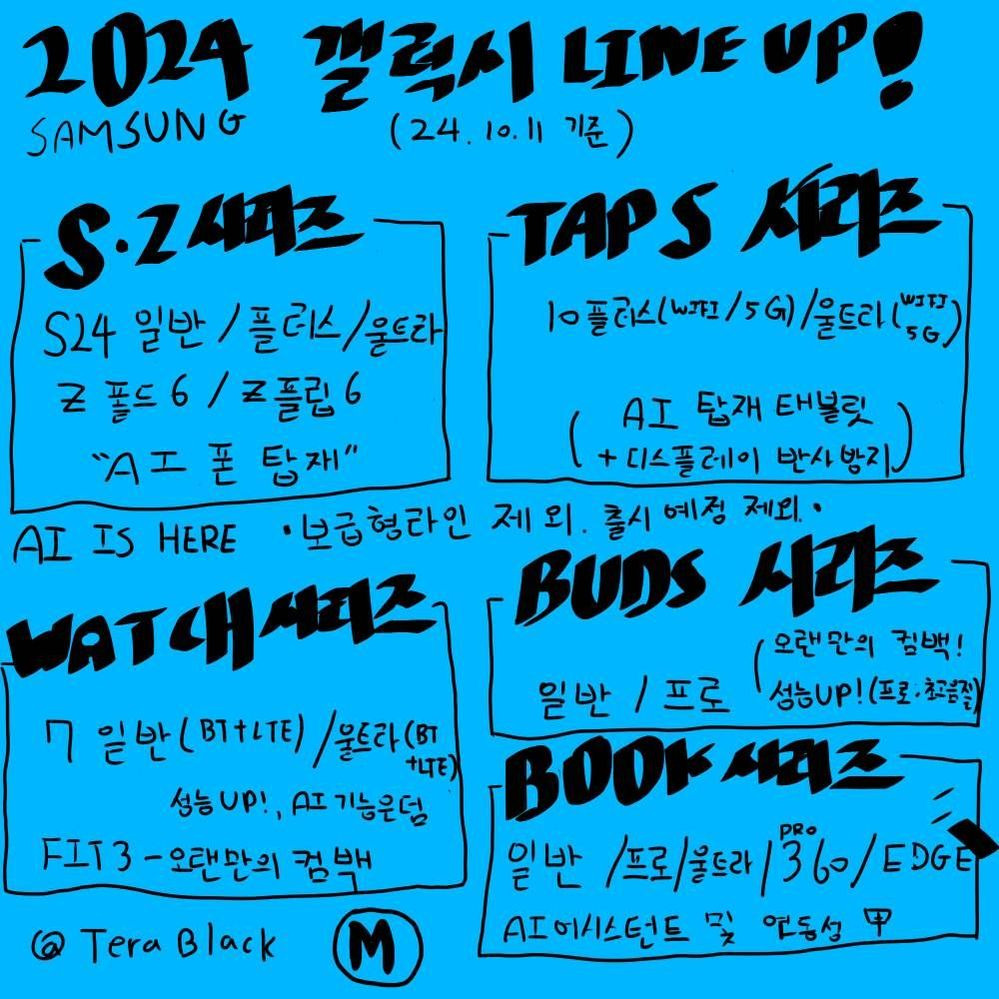 2024 갤럭시 LINE UP!
SAMSUNG
(24.10.11 기준)
S·Z 시리즈
S24 일반/플러스/울트라
Z 폴드6 / Z플립6
"AI 폰 탑재"
TAP S 시리즈
10플러스(WIFI/5G)/울트라(WIFI
5G)
(AI 탑재 태블릿
+디스플레이 반사방지)
AI IS HERE ·보급형라인 제외. 출시 예정 제외.·
WATCH 시리즈
7 일반(BT+LTE)/울트라(BT
+LTE)
성능UP!, AI기능은덤
FIT3-오랜만의 컴백
BUDS 시리즈
일반/프로
(오랜만의 컴백!
성능UP!(프로·초고음질)
BOOK 시리즈
일반/프로/울트라/PRO 360/EDGE
AI어시스턴트 및 연동성 甲
@ Tera Black
M